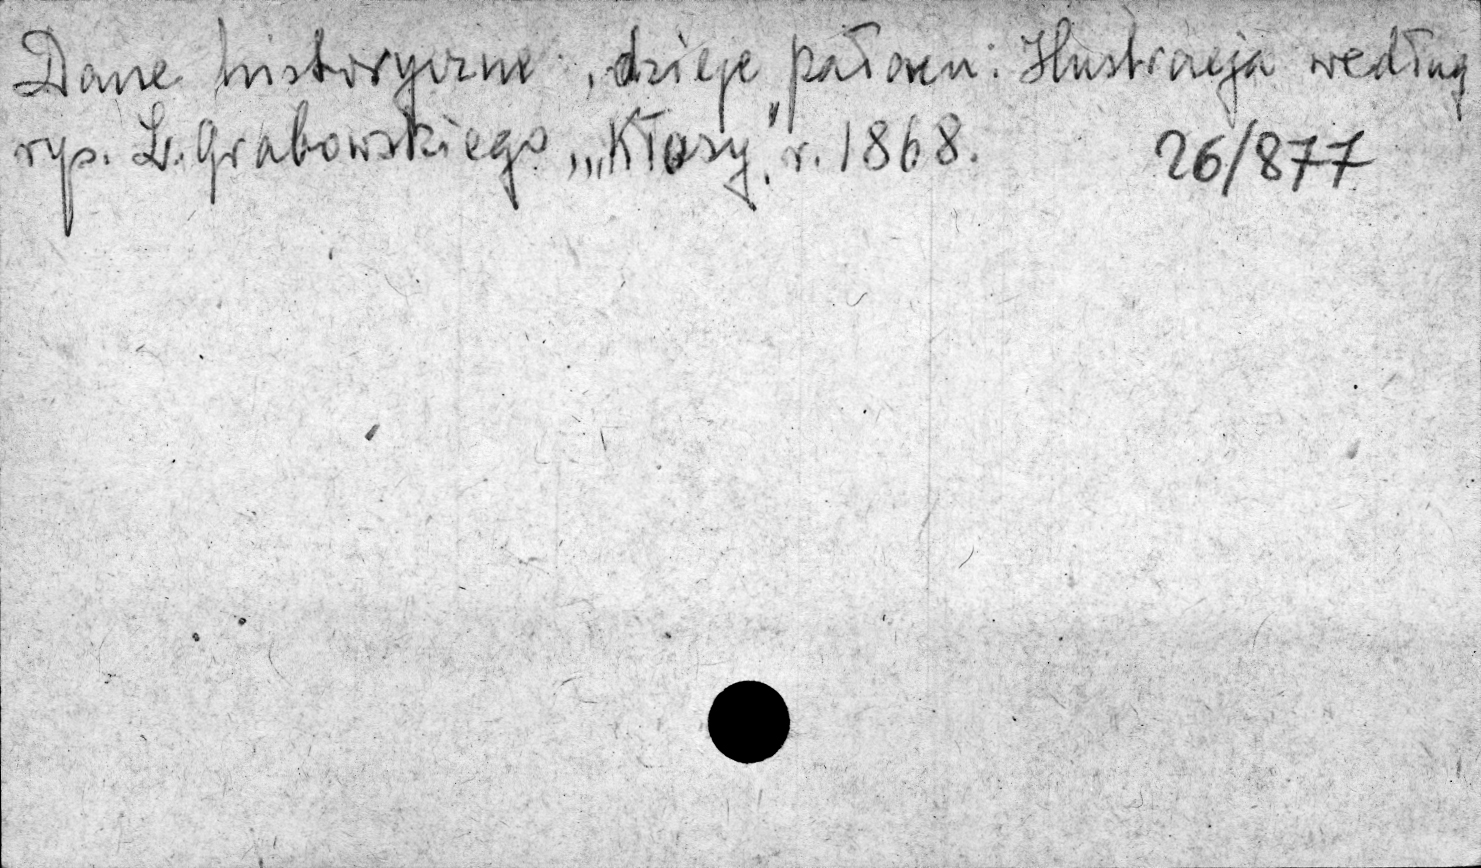 Dane historyczne, dzieje pałacu. Ilustracja według
rys. L. Grabowskiego, „Kłosy", r. 1868. 26/877